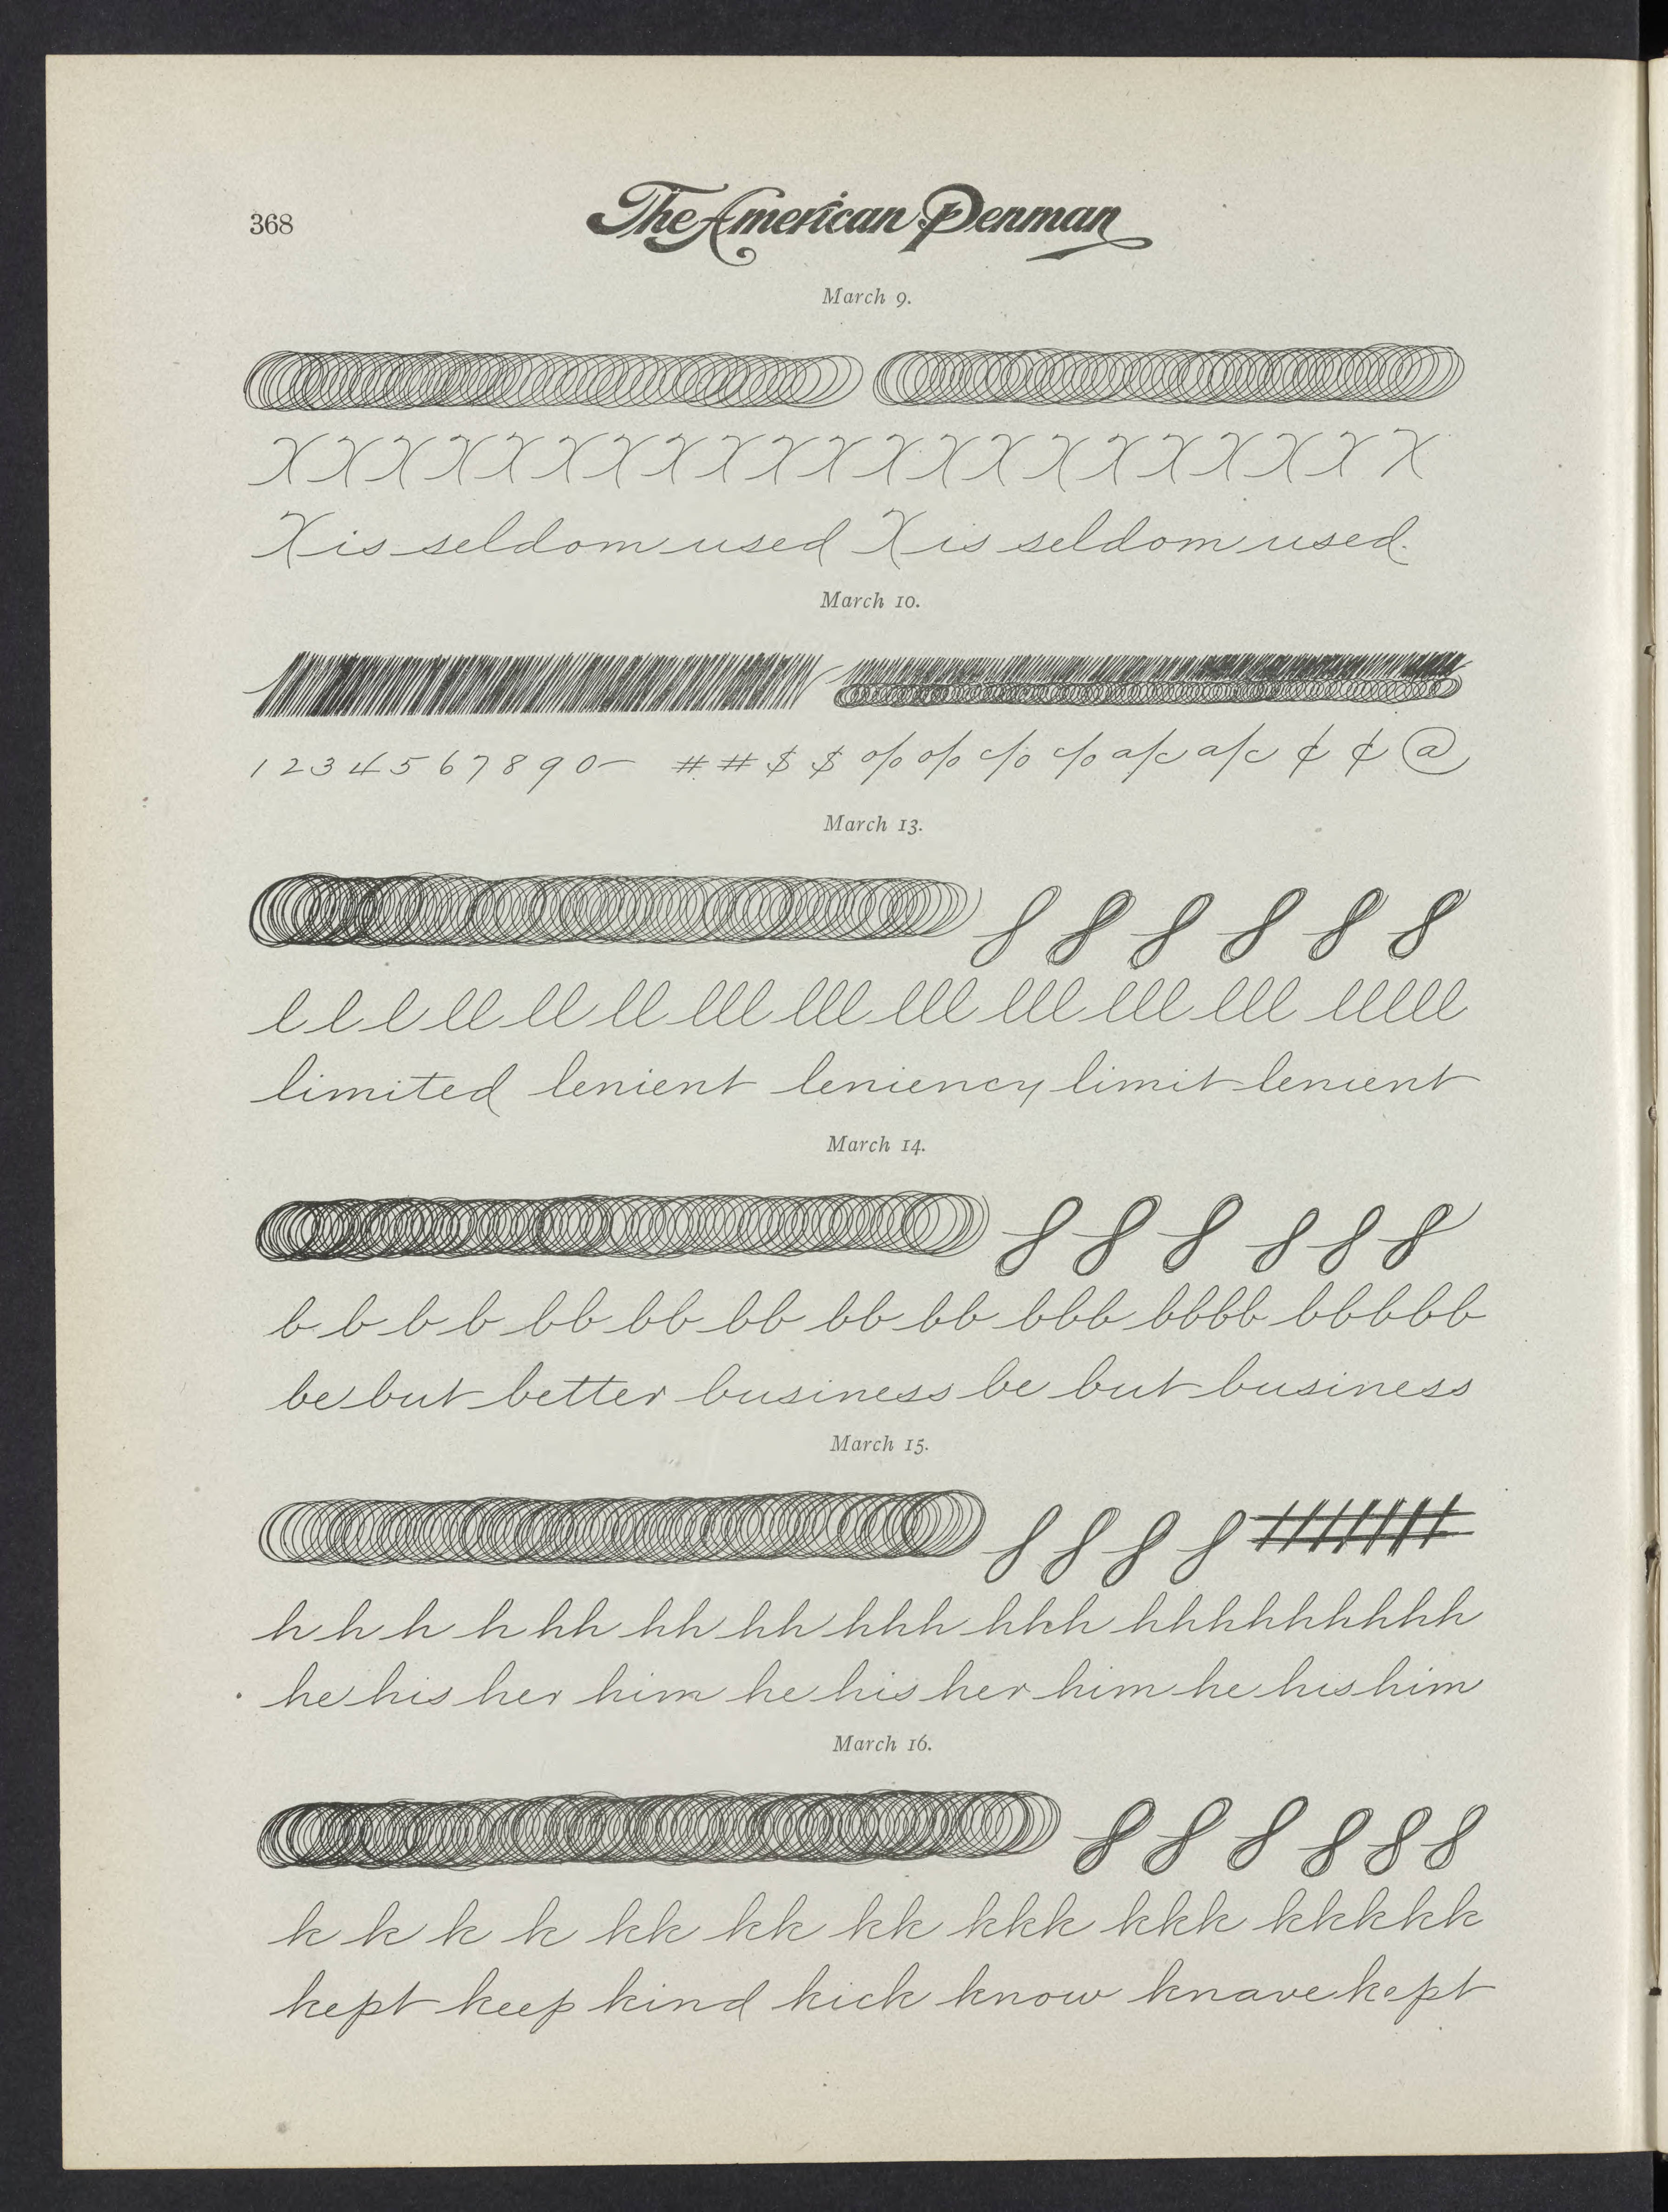 368
The American Penman
March 9.
X X X X X X X X X X X X X X X X X X X X X
X is seldom used X is seldom used.
March 10.
1 2 3 4 5 6 7 8 9 0 — # # $ $ % % c/o c/o a/c a/c ¢ ¢ @
March 13.
l l l ll ll ll lll lll lll lll lll lll lllll
limited lenient leniency limit lenient
March 14.
b b b b bb bb bb bb bb bbb bbbb bbbbb
be but better business be but business
March 15.
h h h h hh hh hh hhh hhh hhhhhhhhhh
he his her him he his her him he his him
March 16.
k k k k kk kk kk kkk kkk kkkkkk
kept keep kind kick know knave kept